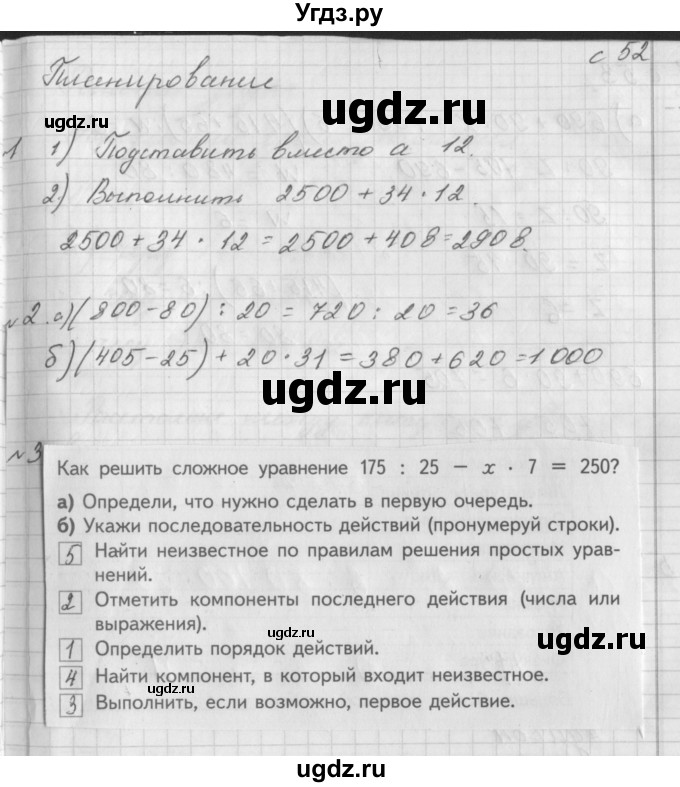 Угдз.ру
с 52
Планирование
1 1) Подставить вместо а 12.
2) Выполнить 2500 + 34 · 12.
2500 + 34 · 12 = 2500 + 408 = 2908.
№2. а) (800 - 80) : 20 = 720 : 20 = 36
б) (405 - 25) + 20 · 31 = 380 + 620 = 1000
№3
Как решить сложное уравнение 175 : 25 − x · 7 = 250?
а) Определи, что нужно сделать в первую очередь.
б) Укажи последовательность действий (пронумеруй строки).
5 Найти неизвестное по правилам решения простых урав-
нений.
2 Отметить компоненты последнего действия (числа или
выражения).
1 Определить порядок действий.
4 Найти компонент, в который входит неизвестное.
3 Выполнить, если возможно, первое действие.
ugdz.ru
ugdz.ru
ugdz.ru
ugdz.ru
ugdz.ru
ugdz.ru
ugdz.ru
ugdz.ru
ugdz.ru